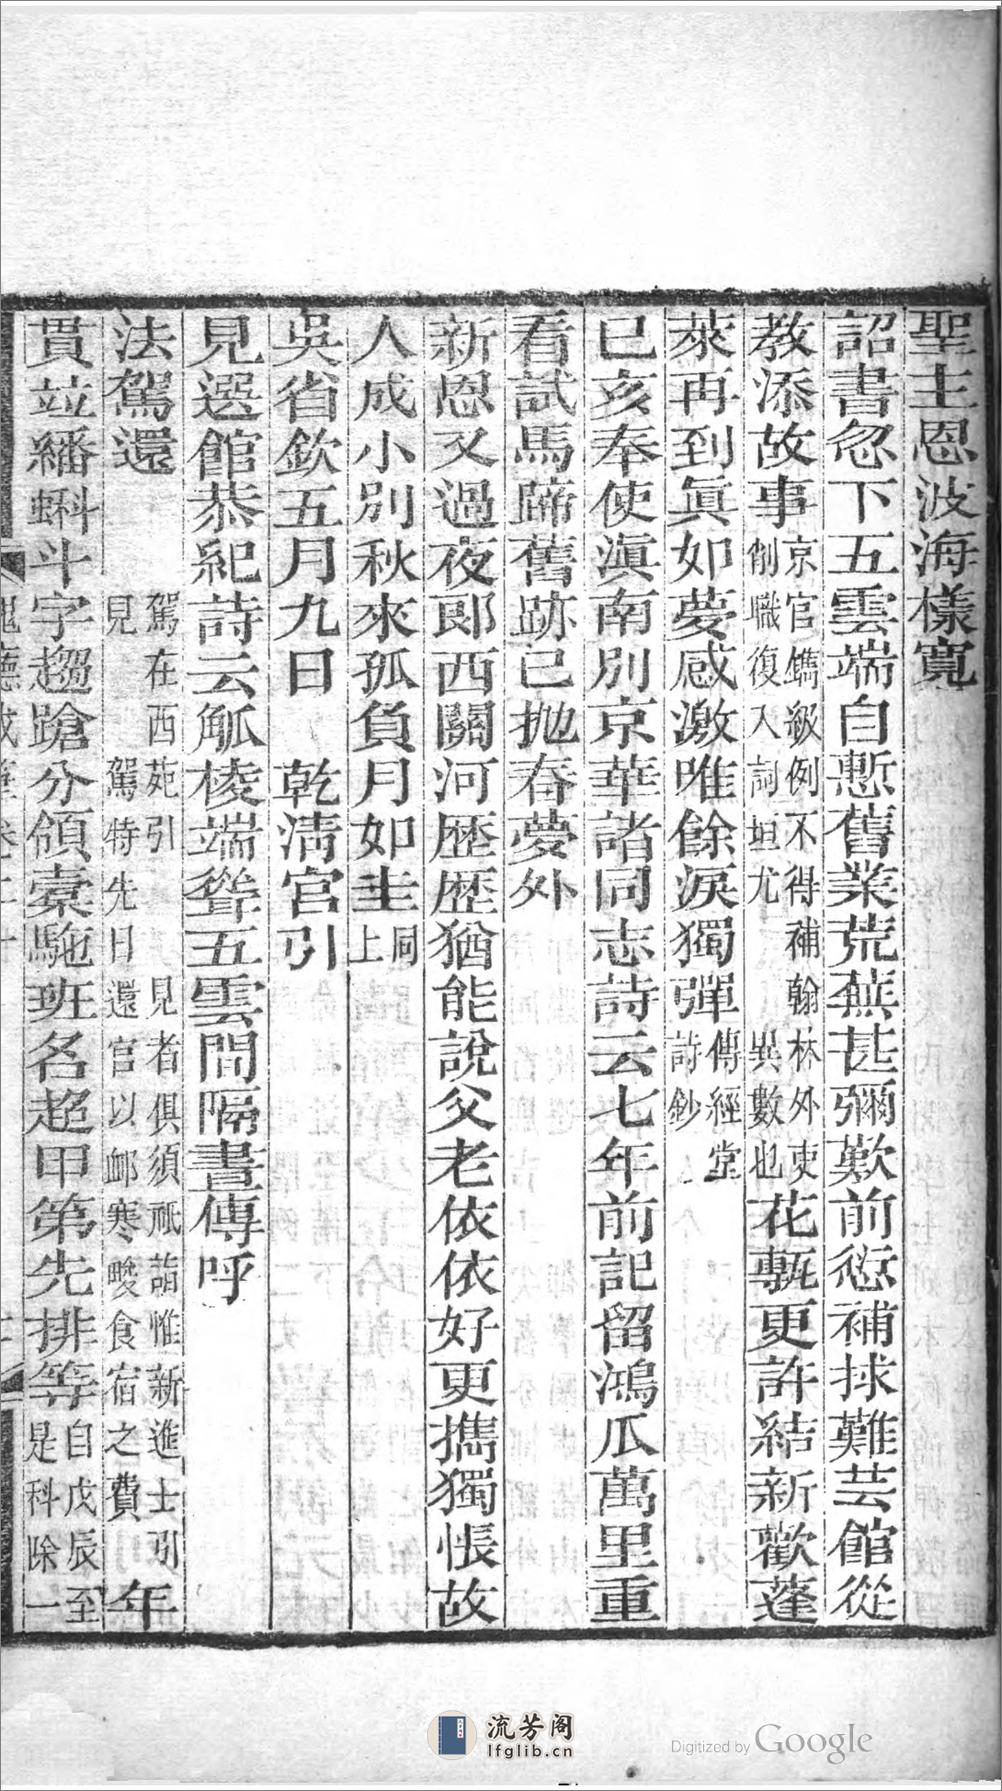 聖主恩波海樣寬
詔書忽下五雲端自慙舊業荒蕪甚彌歎前愆補捄難芸館從
教添故事京官鐫級例不得補翰林外吏削職復入詞垣尤異數也花甎更許結新歡蓬
萊再到眞如夢感激唯餘淚獨彈傳經堂詩鈔
已亥奉使滇南別京華諸同志詩云七年前記留鴻爪萬里重
看試馬蹄舊跡已拋春夢外
新恩又過夜郎西關河歷歷猶能說父老依依好更攜獨悵故
人成小別秋來孤負月如圭同上
吳省欽五月九日乾淸宮引
見選館恭紀詩云觚棱端聳五雲間隔晝傳呼
法駕還駕在西苑引見駕特先日還宮以邮寒畯食宿之費見者俱須祇詣惟新進士引年
貫竝繙蝌斗字趨蹌分領橐駞班名超甲第先排等自戊辰至是科除一
流芳阁
lfglib.cn
Digitized by Google